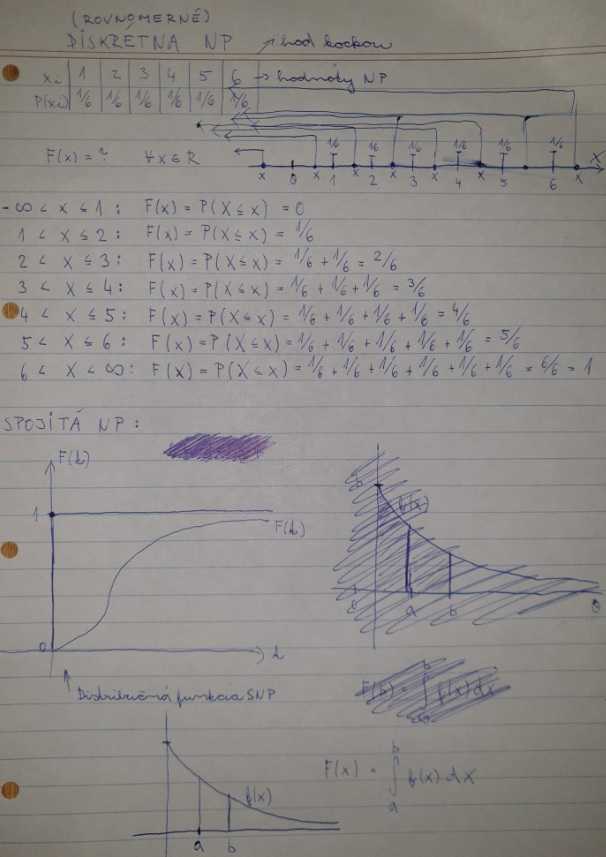 (ROVNOMERNÉ)
DISKRÉTNA NP → hod kockou
xi 1 2 3 4 5 6 → hodnoty NP
P(xi) 1/6 1/6 1/6 1/6 1/6 1/6
1/6 1/6 1/6 1/6 1/6 1/6
F(x) = ? ∀x ∈ R
x 0 x 1 x 2 x 3 x 4 x 5 6 x X
-∞ < x ≤ 1: F(x) = P(X ≤ x) = 0
1 < x ≤ 2: F(x) = P(X ≤ x) = 1/6
2 < x ≤ 3: F(x) = P(X ≤ x) = 1/6 + 1/6 = 2/6
3 < x ≤ 4: F(x) = P(X ≤ x) = 1/6 + 1/6 + 1/6 = 3/6
4 < x ≤ 5: F(x) = P(X ≤ x) = 1/6 + 1/6 + 1/6 + 1/6 = 4/6
5 < x ≤ 6: F(x) = P(X ≤ x) = 1/6 + 1/6 + 1/6 + 1/6 + 1/6 = 5/6
6 < x < ∞: F(x) = P(X ≤ x) = 1/6 + 1/6 + 1/6 + 1/6 + 1/6 + 1/6 = 6/6 = 1
SPOJITÁ NP:
F(t)
1
F(t)
0
t
f(x)
a b
Distribučná funkcia SNP
F(b) = ∫ f(x) dx
f(x)
a b
F(x) = ∫ₐᵇ f(x) dx